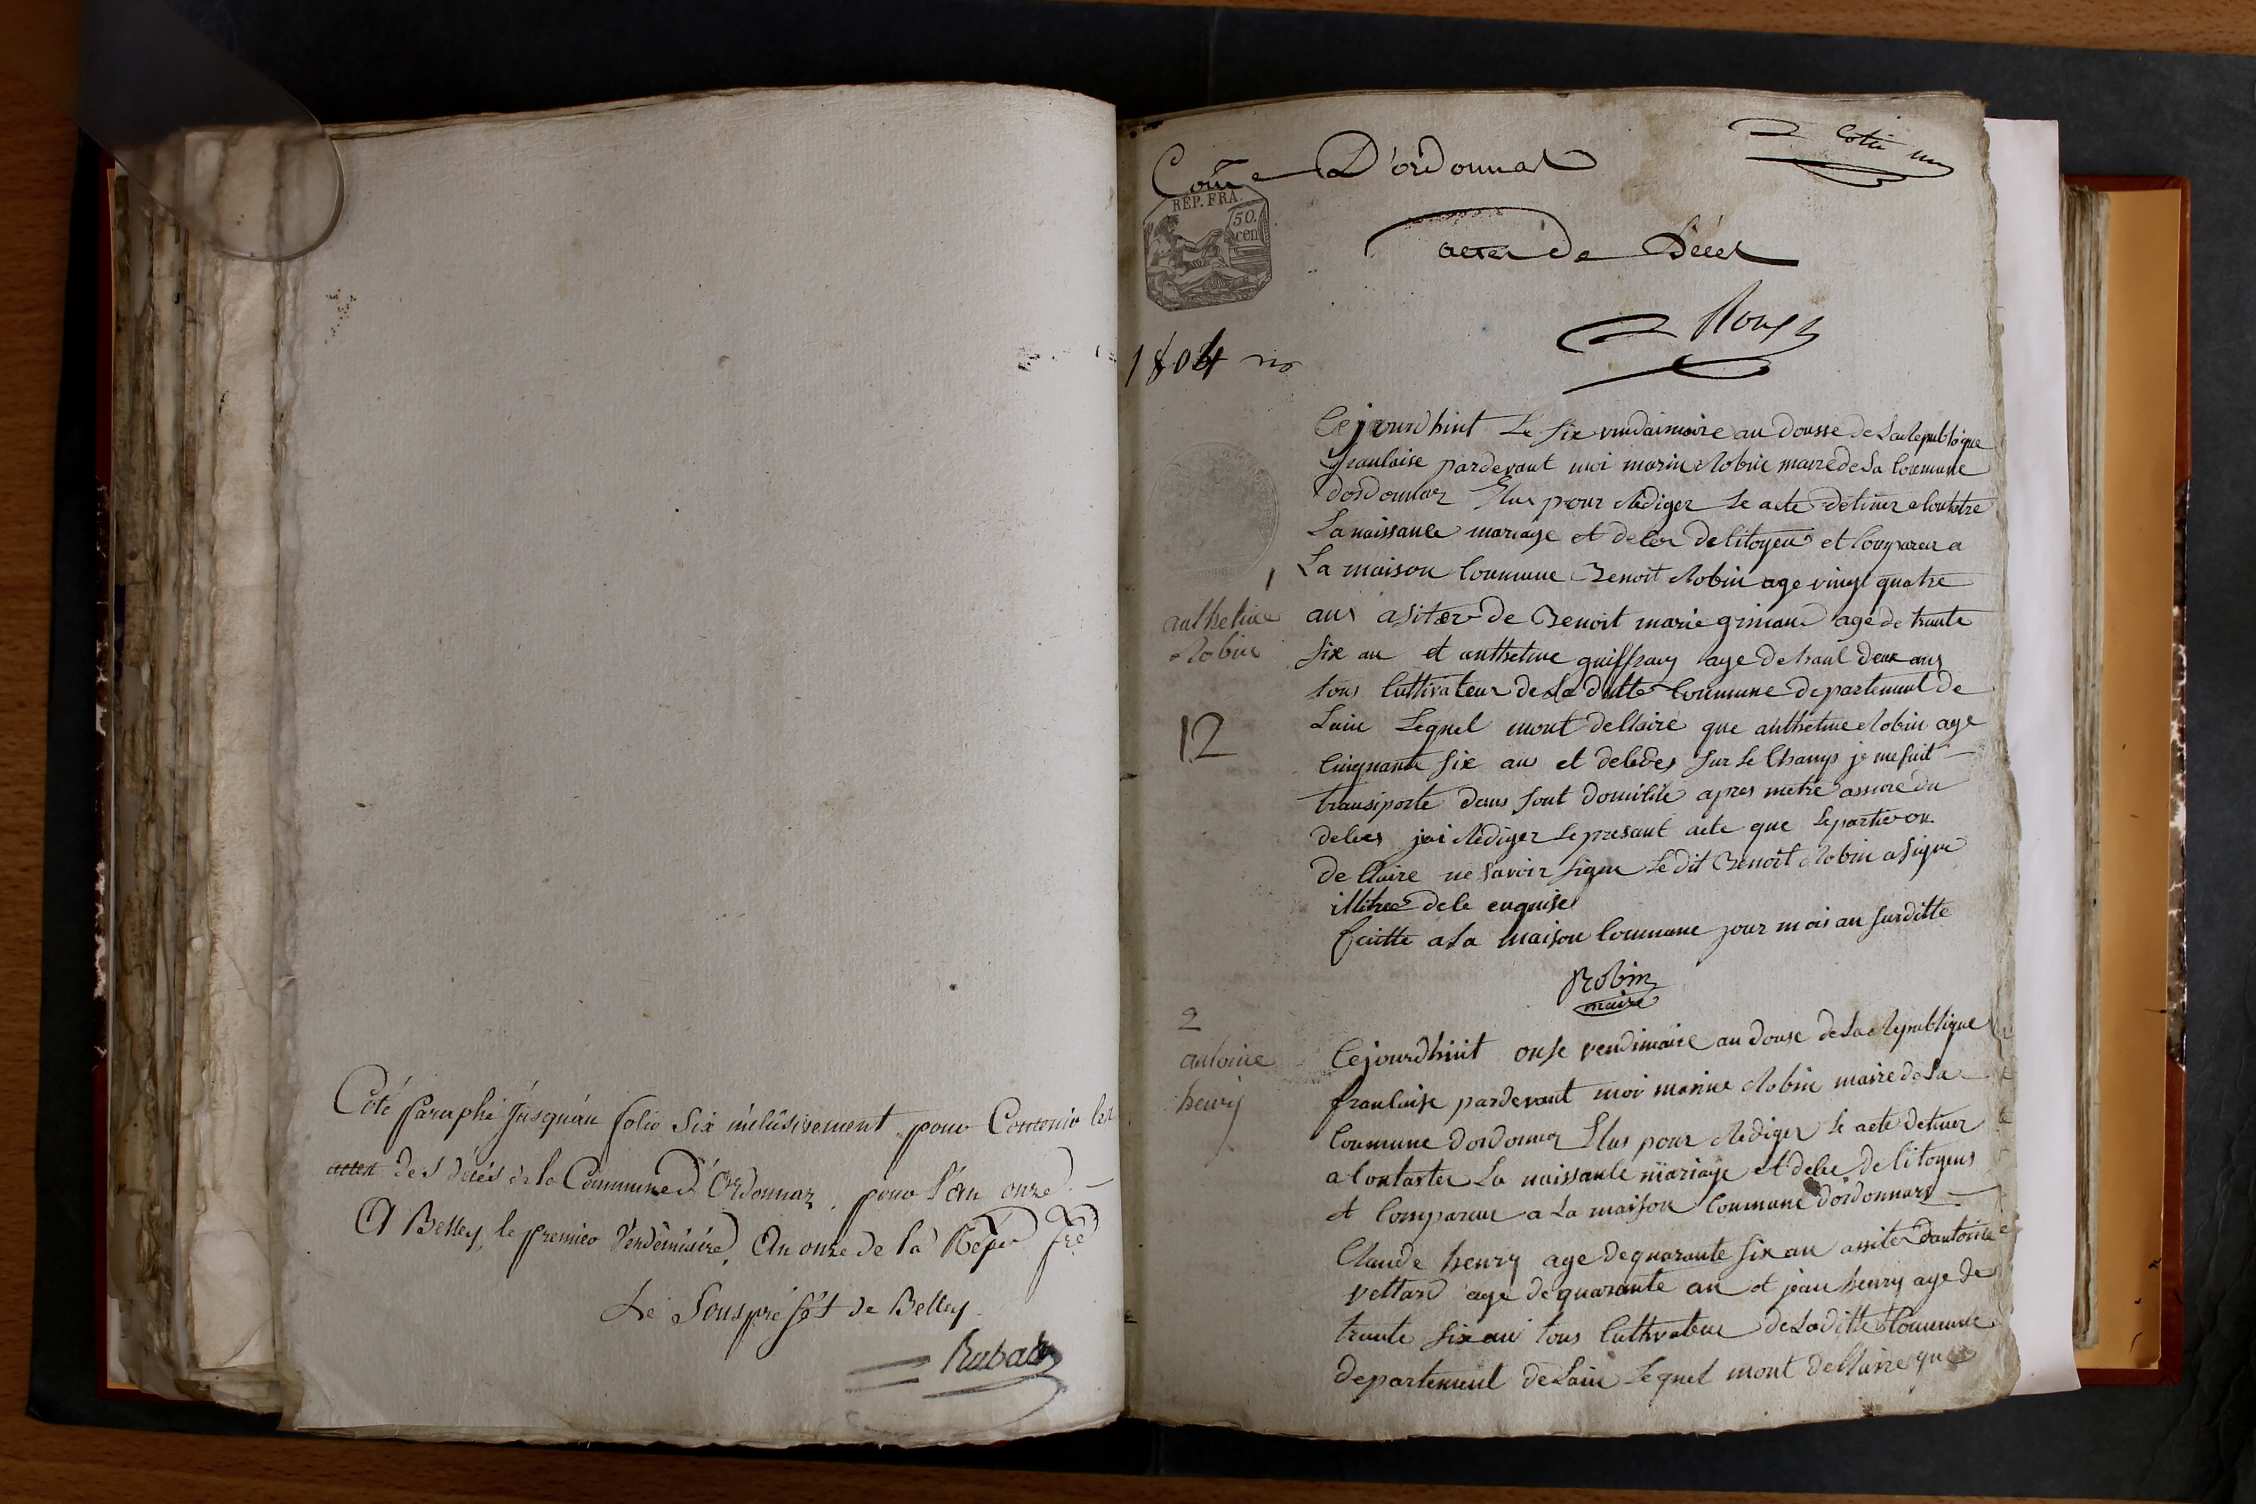 Coté Paraphé Jusqu'au folio Six inclusivement pour Contenir les
actes des décés de la Commune d'Ordonnaz, pour l'an onze
A Belley, le premier Vendémiaire, An onze de la Répu fre
Le Souspréfèt de Belley
Rubat
Come D'ordonnas
Cotté un
REP. FRA.
50. cen
actes de Décès
1804
Cejourdhint Le six vindaimaire an dousse de La Republique
franlaise pardevant moi marin Robin maire de La Commune
dordonnaz Elus pour Rediger Le acte detiner a
La naissance mariage et deces de litoyens et Comparu a
1
La maison Commune Benoit Robin age vingt quatre
anthelme
Robin
ans asiter de Benoit marie age de trante
six an et anthelme guiffray age de trant deux ans
tous Cultivateur de La ditte Commune departement de
12
Lain Lequel mont dellaire que anthelme Robin age
Cinquante six ans et decedes sur Le Champ je me suit
transiporte dans sont domicile apres metre assure du
deces jai Rediger Le presant acte que Le partie on
dellaire ne savoir signe Le dit Benoit Robin a signe
de le enquise
faitte a La maison Commune jour mois an surditte
Robin
maire
2
antoine
henry
Cejourdhuit onse vendimaire an douse de La Republique
franlaise pardevant moi marin Robin maire de La
Commune dordonnaz Elus pour Rediger Le acte detiner
a Contaster La naissance mariage et dece de litoyens
et Compareu a La maison Commune dordonnaz
Claude henry age de quarante six an assiter dantoine
vettard age de quarante an et jean henry age de
trante six an tous Cultivateur de La ditte Commune
departement de Lain Lequel mont dellaire que